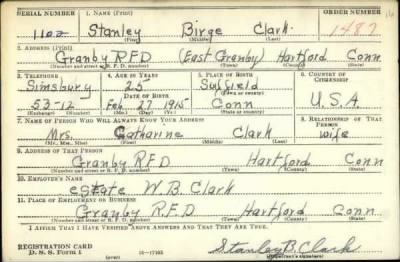 SERIAL NUMBER 1. NAME (Print) ORDER NUMBER
1102 Stanley Birge Clark 1487
(First) (Middle) (Last)
2. ADDRESS (Print)
Granby R.F.D (East Granby) Hartford Conn
(Number and street or R. F. D. number) (Town) (County) (State)
3. TELEPHONE 4. AGE IN YEARS 5. PLACE OF BIRTH 6. COUNTRY OF CITIZENSHIP
Simsbury 25 Suffield
DATE OF BIRTH (Town or county)
53-12 Feb 27 1915 Conn U.S.A.
(Exchange) (Number) (Mo.) (Day) (Yr.) (State or country)
7. NAME OF PERSON WHO WILL ALWAYS KNOW YOUR ADDRESS 8. RELATIONSHIP OF THAT PERSON
Mrs. Catharine Clark wife
(Mr., Mrs., Miss) (First) (Middle) (Last)
9. ADDRESS OF THAT PERSON
Granby R.F.D Hartford Conn
(Number and street or R. F. D. number) (Town) (County) (State)
10. EMPLOYER'S NAME
estate W. B. Clark
11. PLACE OF EMPLOYMENT OR BUSINESS
Granby R.F.D Hartford Conn
(Number and street or R. F. D. number) (Town) (County) (State)
I AFFIRM THAT I HAVE VERIFIED ABOVE ANSWERS AND THAT THEY ARE TRUE.
REGISTRATION CARD
D. S. S. Form 1 16—17105 Stanley B. Clark
(over) (Registrant's signature)